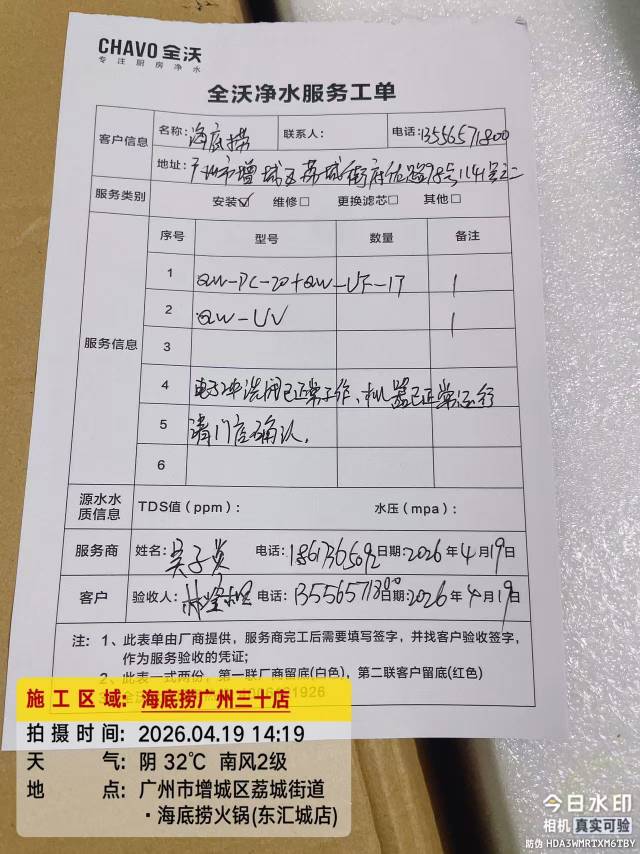 CHAVO 全沃
专注厨房净水
全沃净水服务工单
客户信息
名称: 海底捞 联系人: 电话: 13556571800
地址: 广州市增城区荔城街府佑路98号1141号之二
服务类别 安装☑ 维修☐ 更换滤芯☐ 其他☐
服务信息
序号 型号 数量 备注
1 QW-PC-20+QW-UF-1T 1
2 QW-UV 1
3
4 电子冲洗阀已正常工作、机器已正常运行
5 请门店确认.
6
源水水质信息 TDS值(ppm): 水压(mpa):
服务商 姓名: 电话: 日期: 2026年4月19日
客户 验收人: 电话: 13556571800 日期: 2026年4月19日
注: 1、此表单由厂商提供，服务商完工后需要填写签字，并找客户验收签字，
作为服务验收的凭证;
2、此表一式两份，第一联厂商留底(白色)，第二联客户留底(红色)
施工区域: 海底捞广州三十店
拍摄时间: 2026.04.19 14:19
天气: 阴 32℃ 南风2级
地点: 广州市增城区荔城街道
·海底捞火锅(东汇城店)
今日水印
相机 真实可验
防伪 HDA3WMRTXM6TBY